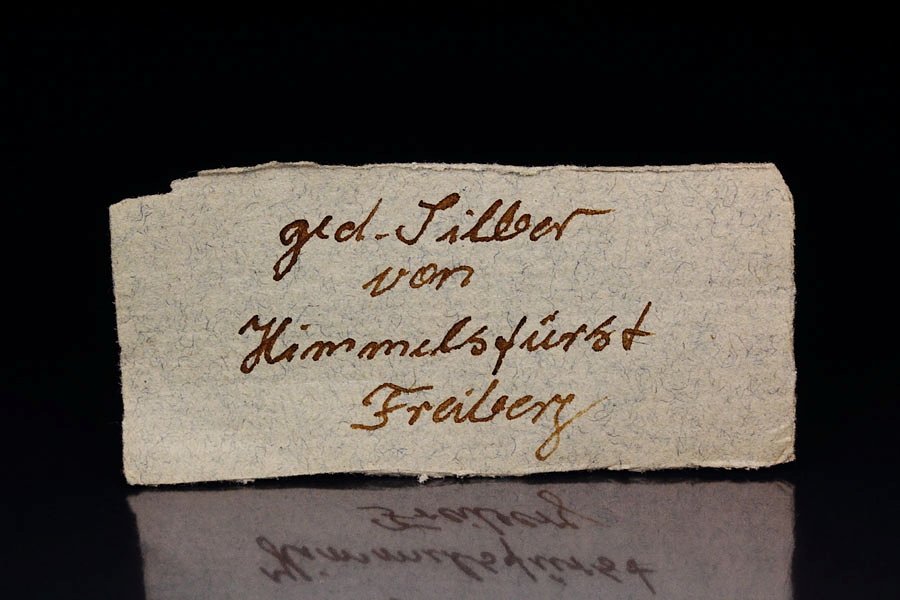 ged. Silber
von
Himmelsfürst
Freiberg